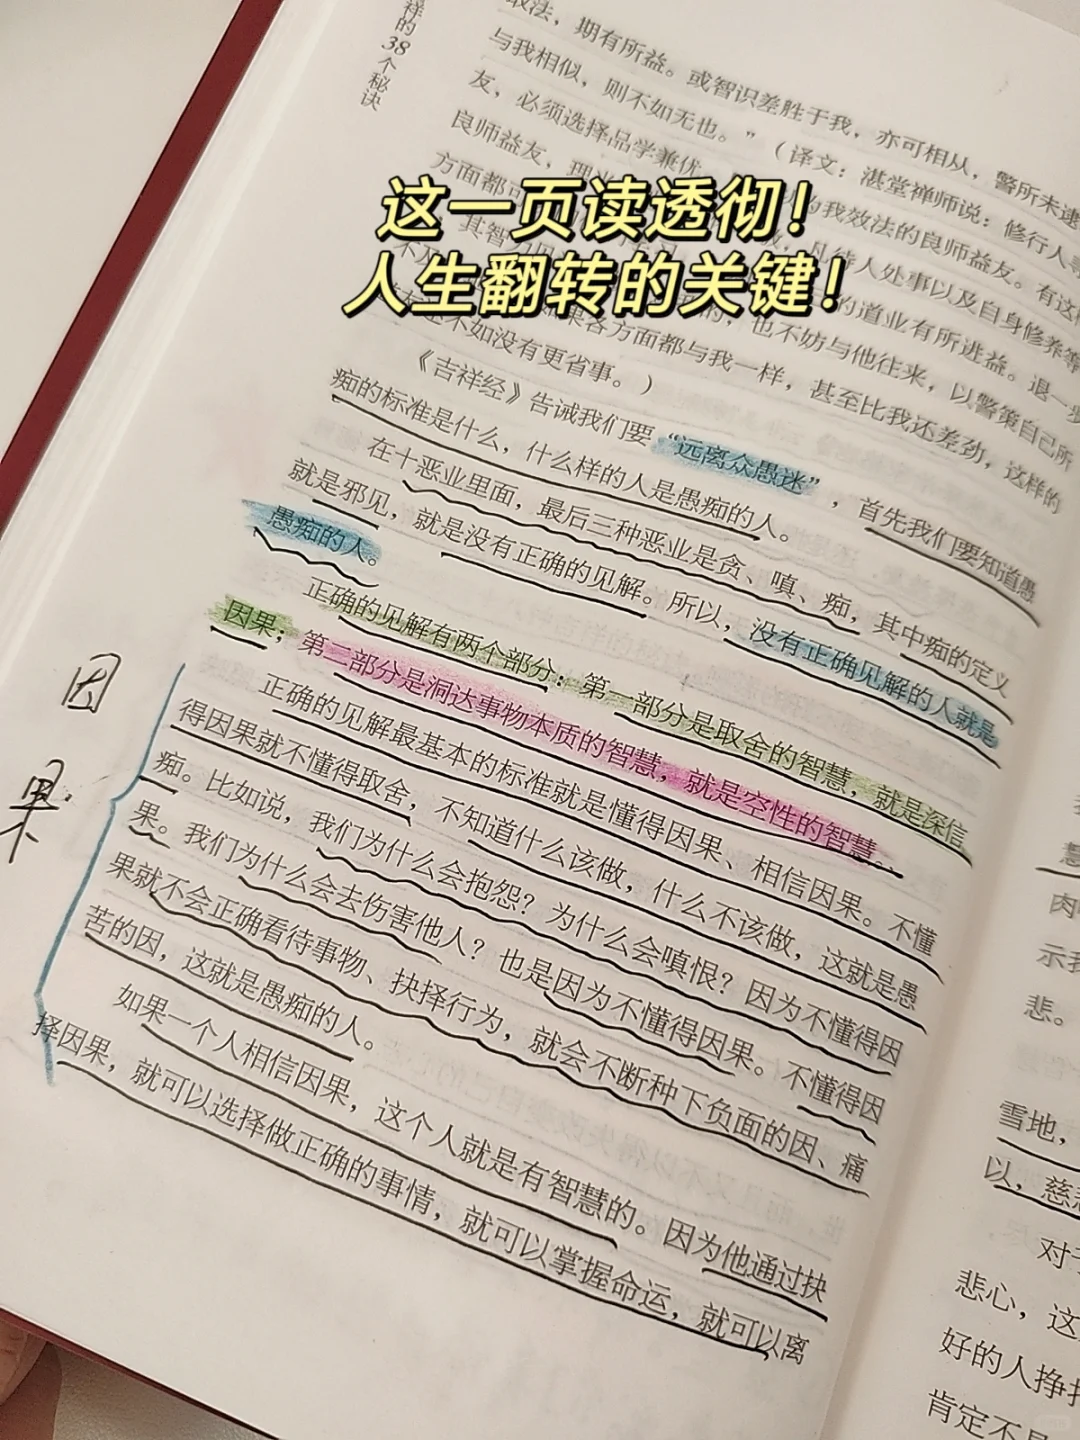 祥的38个秘诀
取法，期有所益。或智识差胜于我，亦可相从，警所未逮
与我相似，则不如无也。”（译文：湛堂禅师说：修行人
友，必须选择品学兼优
为我效法的良师益友。有这
良师益友，理
待人处事以及自身修养等
方面都可
的道业有所进益。退一步
其智
也不妨与他往来，以警策自己所
不及
果各方面都与我一样，甚至比我还差劲，这样的
不如没有更省事。）
这一页读透彻！
人生翻转的关键！
《吉祥经》告诫我们要“远离众愚迷”，首先我们要知道愚
痴的标准是什么，什么样的人是愚痴的人。
在十恶业里面，最后三种恶业是贪、嗔、痴，其中痴的定义
就是邪见，就是没有正确的见解。所以，没有正确见解的人就是
愚痴的人。
正确的见解有两个部分：第一部分是取舍的智慧，就是深信
因果；第二部分是洞达事物本质的智慧，就是空性的智慧。
正确的见解最基本的标准就是懂得因果、相信因果。不懂
得因果就不懂得取舍，不知道什么该做，什么不该做，这就是愚
痴。比如说，我们为什么会抱怨？为什么会嗔恨？因为不懂得因
果。我们为什么会去伤害他人？也是因为不懂得因果。不懂得因
果就不会正确看待事物、抉择行为，就会不断种下负面的因、痛
苦的因，这就是愚痴的人。
如果一个人相信因果，这个人就是有智慧的。因为他通过抉
择因果，就可以选择做正确的事情，就可以掌握命运，就可以离
因
果
慧
肉
示我
悲。
雪地，
以，慈悲
对于
悲心，这
好的人挣扎
肯定不是